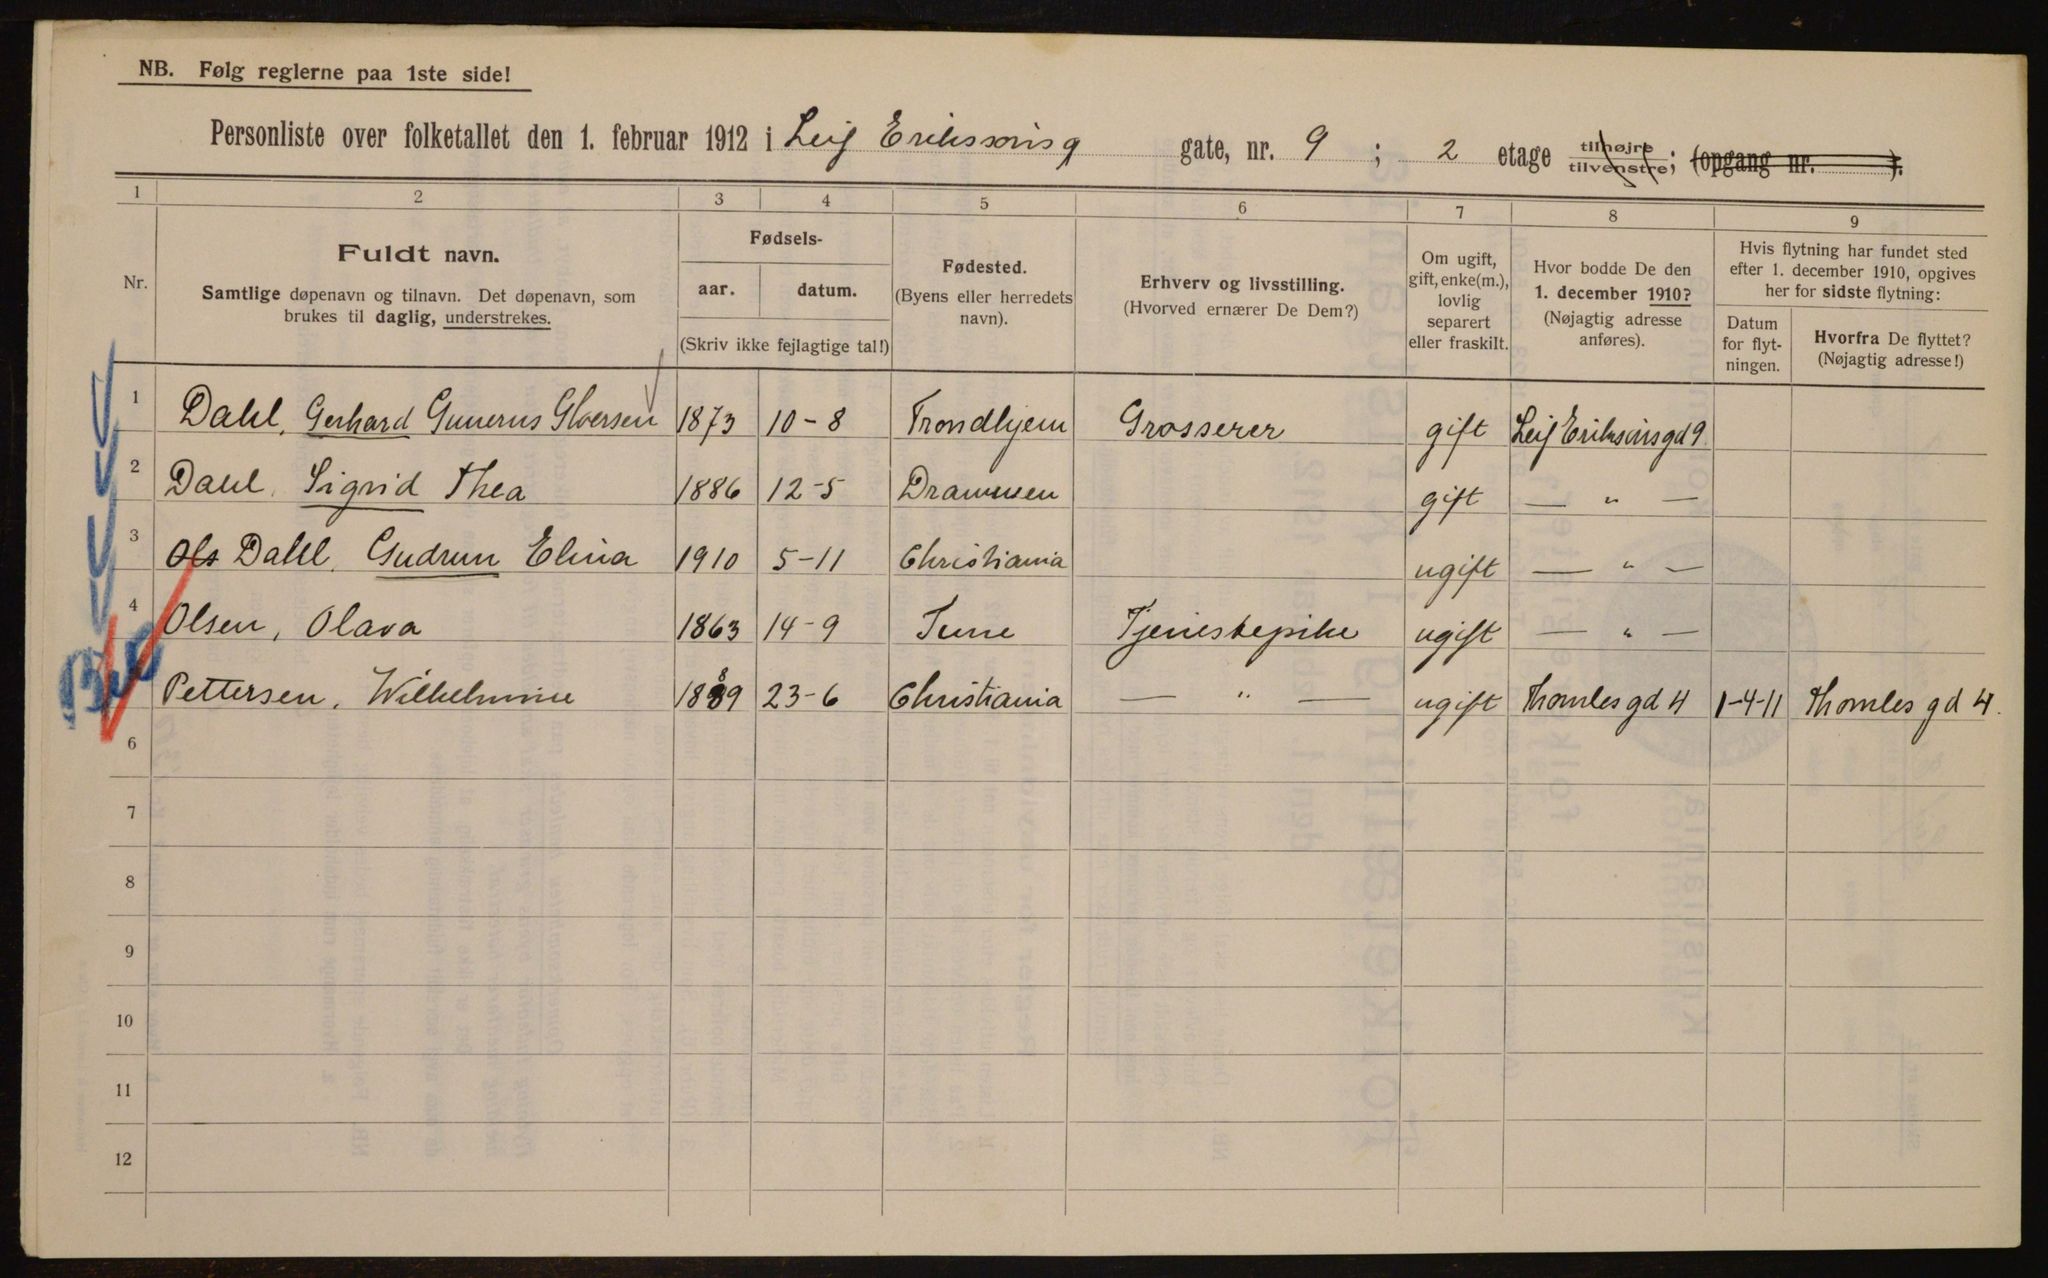 NB. Følg reglerne paa 1ste side!
Personliste over folketallet den 1. februar 1912 i Leif Eriksonsg gate, nr. 9 ; 2 etage tilhøjre tilvenstre; (opgang nr. ).
1 2 3 4 5 6 7 8 9
Nr.
Fuldt navn.
Samtlige døpenavn og tilnavn. Det døpenavn, som
brukes til daglig, understrekes.
Fødsels-
aar. datum.
(Skriv ikke fejlagtige tal!)
Fødested.
(Byens eller herredets
navn).
Erhverv og livsstilling.
(Hvorved ernærer De Dem?)
Om ugift,
gift, enke(m.),
lovlig
separert
eller fraskilt.
Hvor bodde De den
1. december 1910?
(Nøjagtig adresse
anføres).
Hvis flytning har fundet sted
efter 1. december 1910, opgives
her for sidste flytning:
Datum
for flyt-
ningen.
Hvorfra De flyttet?
(Nøjagtig adresse!)
1 Dahl, Gerhard Gunerus 1873 10-8 Trondhjem Grosserer gift Leif Eriksonsgd 9.
2 Dahl, Sigrid Thea 1886 12-5 Drammen gift — " —
3 Ols Dahl, Gudrun Elina 1910 5-11 Christiania ugift — " —
4 Olsen, Olava 1863 14-9 Tune Tjenestepike ugift — " —
Pettersen, Wilhelmine 1889 23-6 Christiania — " — ugift Thomlesgd 4 1-4-11 Thomles gd 4.
6
7
8
9
10
11
12